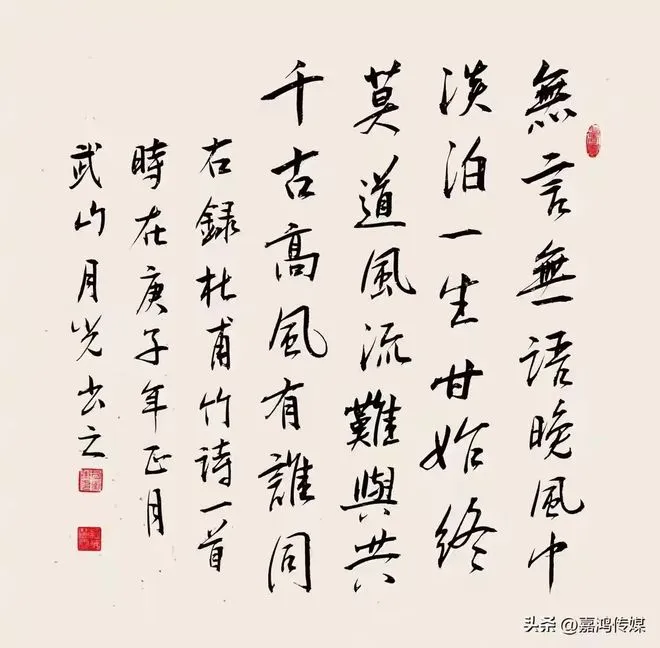 無言無語晚風中
淡泊一生甘始終
莫道風流難與共
千古高風有誰同
右録杜甫竹诗一首
時在庚子年正月
武山月光书之
头条@嘉鸿传媒